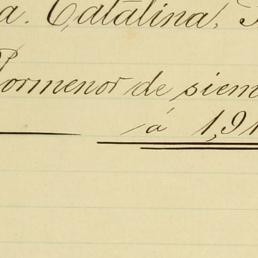 a. Catalina.
Pormenor de siem
á 1,91